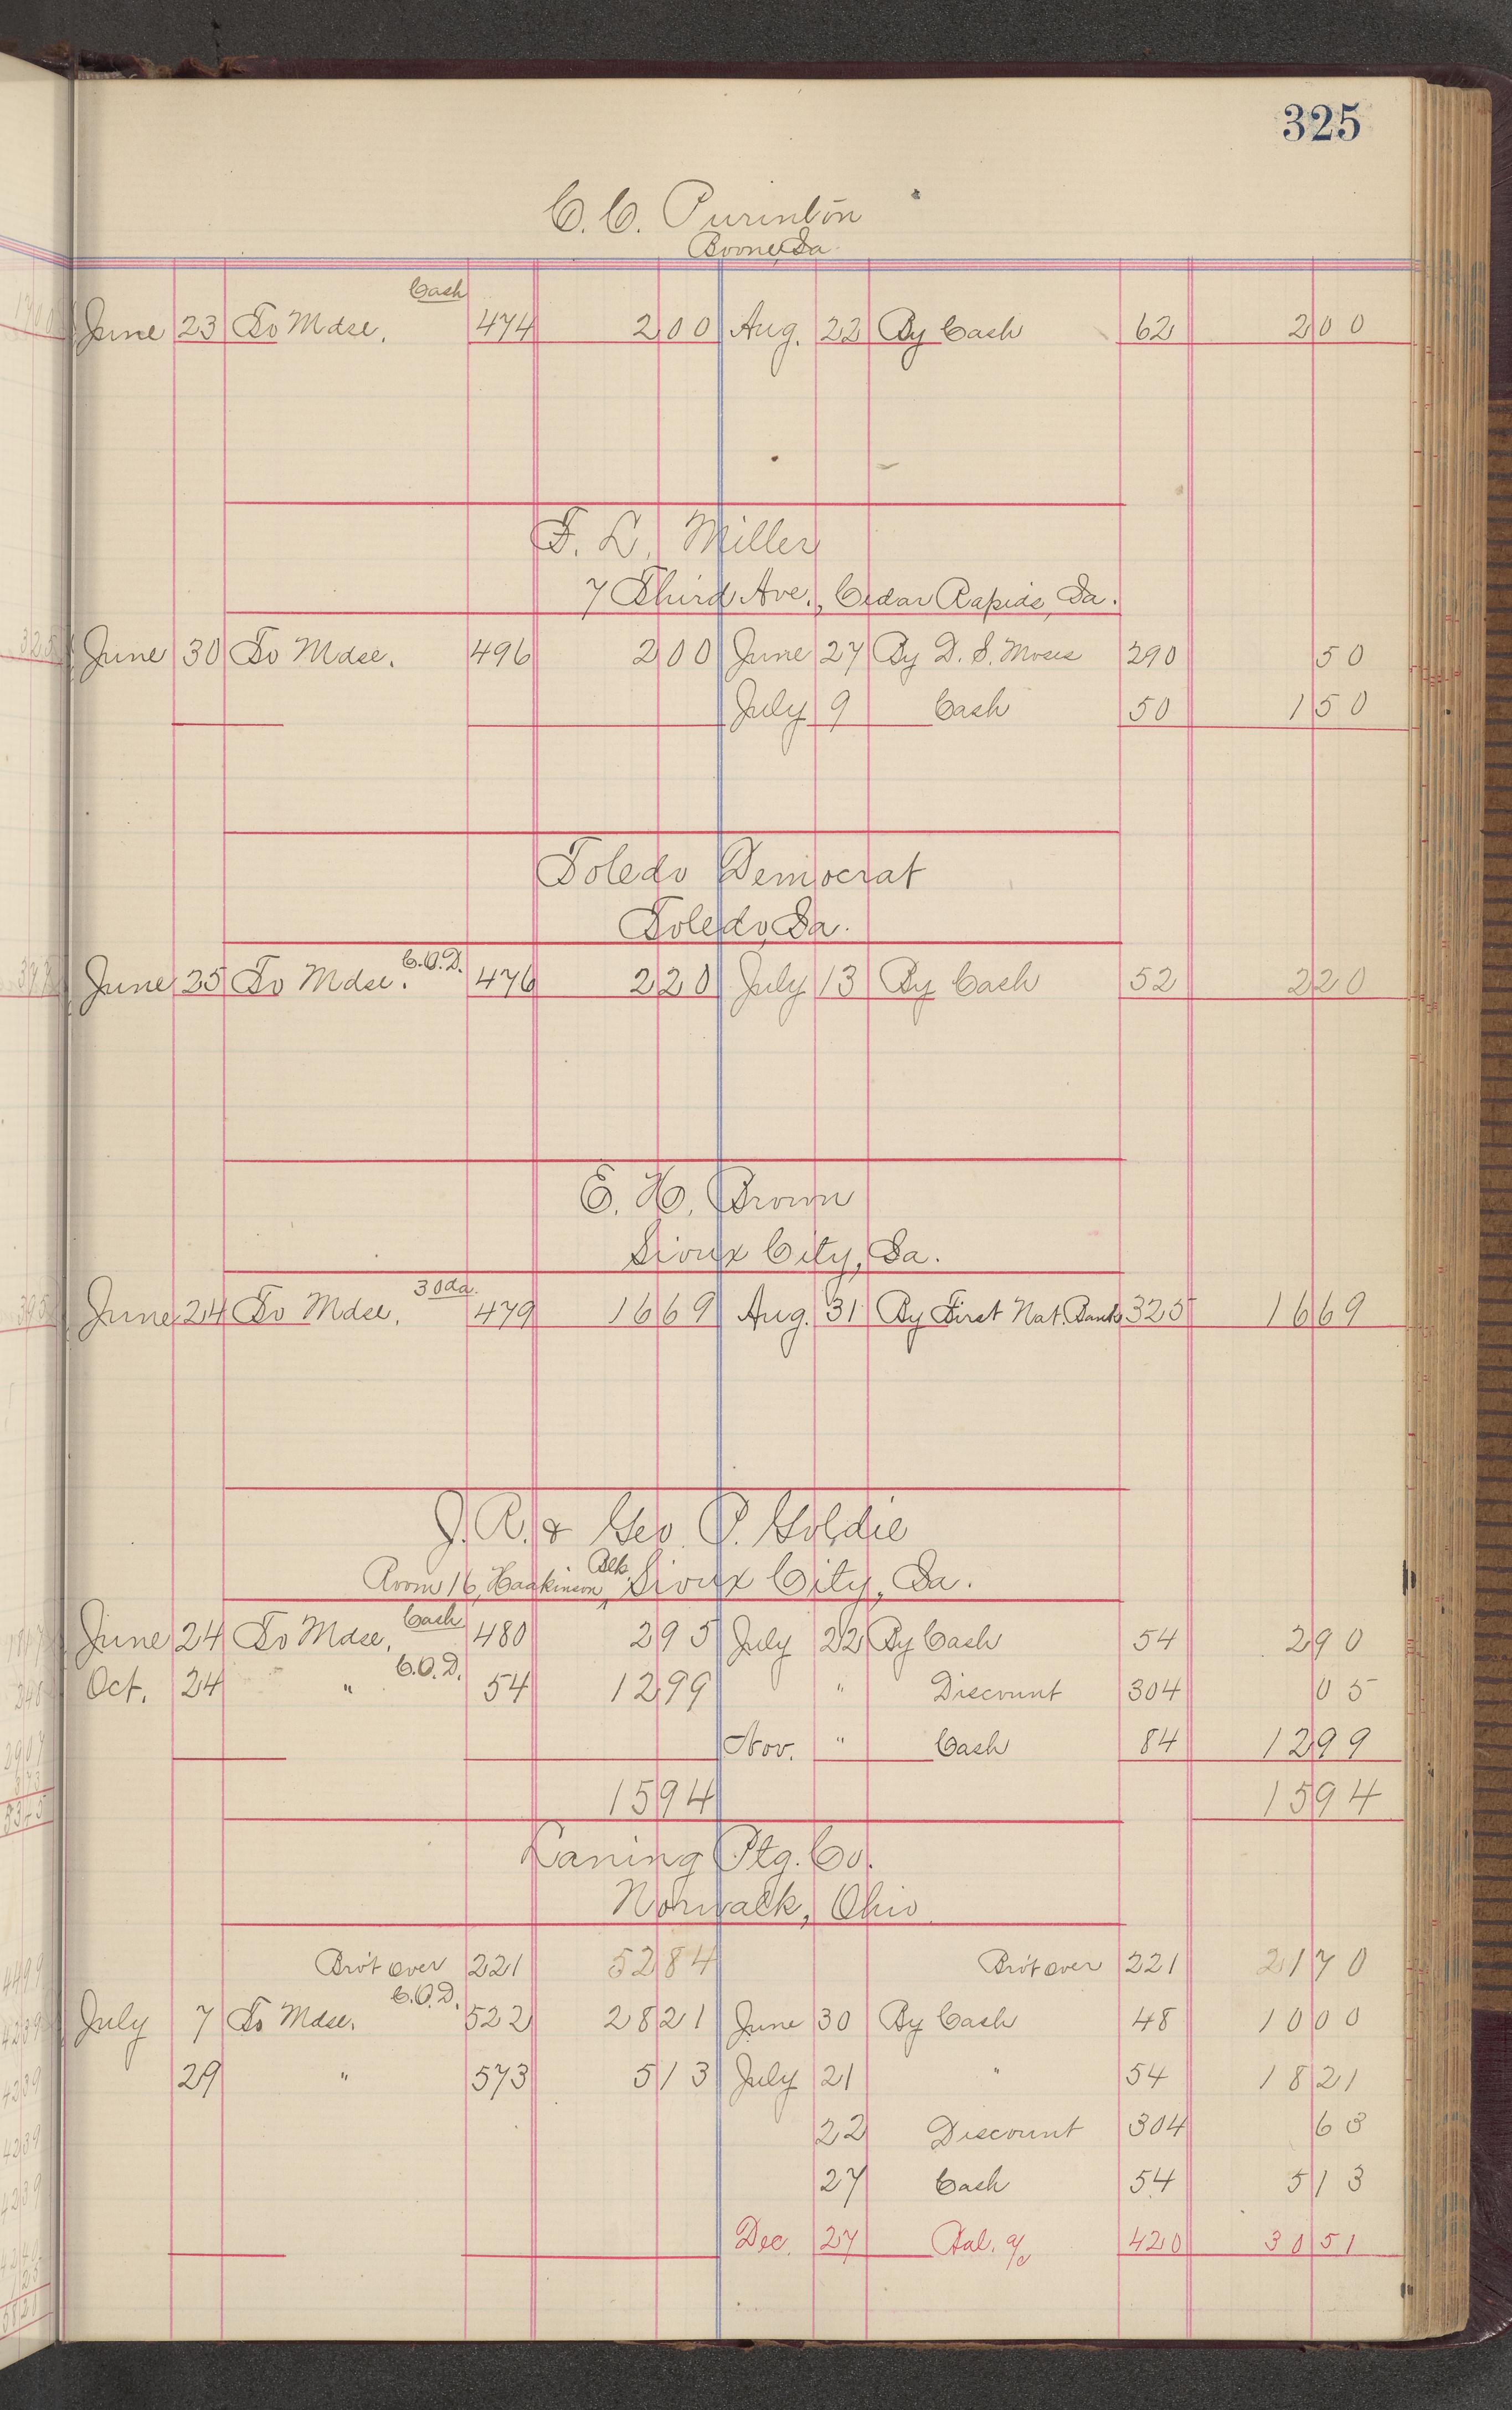 325
C. C. Purinton
Boone, Ia.
Cash
June 23 To Mdse. 474 2 00 Aug. 22 By Cash 62 2 00
F. L. Miller
7 Third Ave., Cedar Rapids, Ia.
June 30 To Mdse. 496 2 00 June 27 By D. S. Moses 290 50
July 9 Cash 50 1 50
Toledo Democrat
Toledo, Ia.
C.O.D.
June 25 To Mdse. 476 2 20 July 13 By Cash 52 2 20
E. H. Brown
Sioux City, Ia.
30 da.
June 24 To Mdse. 479 16 69 Aug. 31 By First Nat. Bank 325 16 69
J. R. & Geo. P. Goldie
Room 16, Haakinson Blk. Sioux City, Ia.
Cash
June 24 To Mdse. 480 2 95 July 22 By Cash 54 2 90
C.O.D.
Oct. 24 " 54 12 99 " Discount 304 05
Nov. " Cash 84 12 99
15 94 15 94
Laning Ptg. Co.
Norwalk, Ohio
Bro't over 221 52 84 Bro't over 221 21 70
C.O.D.
July 7 To Mdse. 522 28 21 June 30 By Cash 48 10 00
29 " 573 5 13 July 21 " 54 18 21
22 Discount 304 63
27 Cash 54 5 13
Dec. 27 Bal. a/c 420 30 51